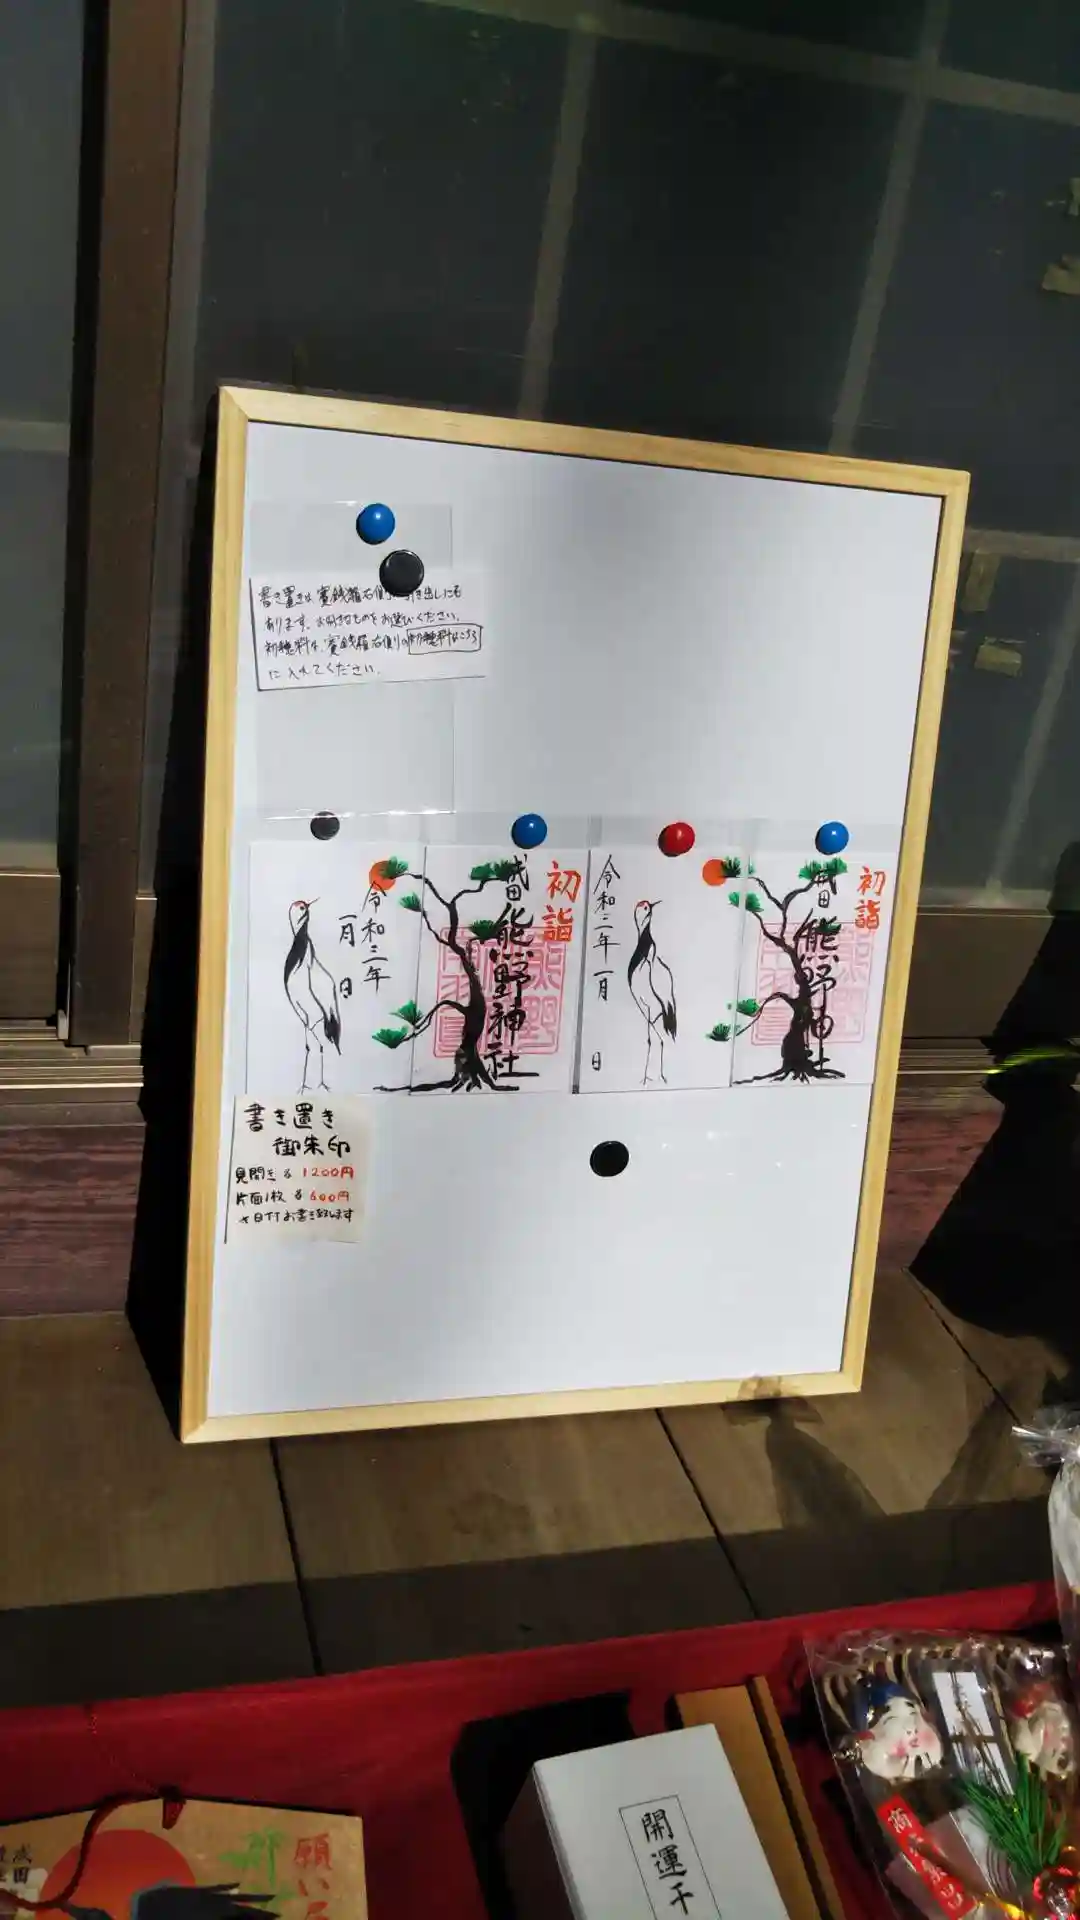 書き置きは、賽銭箱右側の引き出しにも
あります。お好きなものをお選びください。
初穂料は、賽銭箱右側の初穂料はこちら
に入れてください。
初詣
成田
熊野神社
令和三年
一月 日
初詣
成田
熊野神社
令和二年一月 日
書き置き
御朱印
見開き 1200円
片面1枚 600円
日付お書き致します
願い
開運千
成田